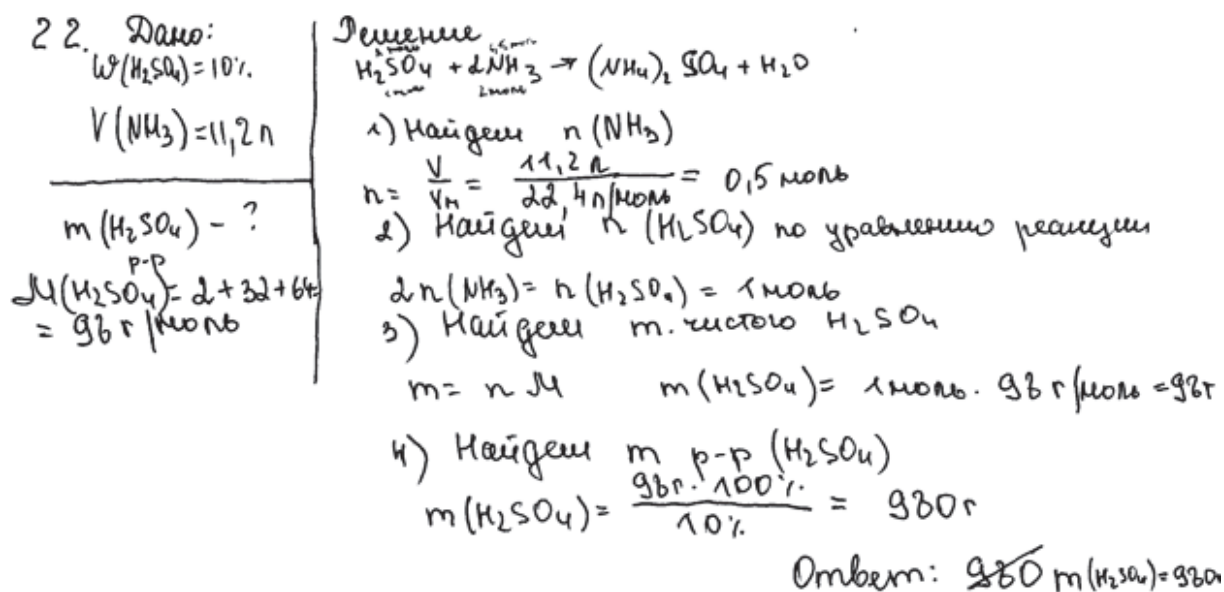 22. Дано:
W(H₂SO₄)=10%
V(NH₃)=11,2л
m(H₂SO₄) - ?
р-р
M(H₂SO₄)=2+32+64=
= 98 г/моль
Решение
H₂SO₄ + 2NH₃ → (NH₄)₂SO₄ + H₂O
2моль
1) Найдем n(NH₃)
n = V/Vm = 11,2л/22,4л/моль = 0,5 моль
2) Найдем n(H₂SO₄) по уравнению реакции
2n(NH₃) = n(H₂SO₄) = 1моль
3) Найдем m чистого H₂SO₄
m = n M m(H₂SO₄) = 1моль · 98 г/моль = 98г
4) Найдем m р-р (H₂SO₄)
m(H₂SO₄) = 98г · 100%/10% = 980г
Ответ: 980 m(H₂SO₄)=980г